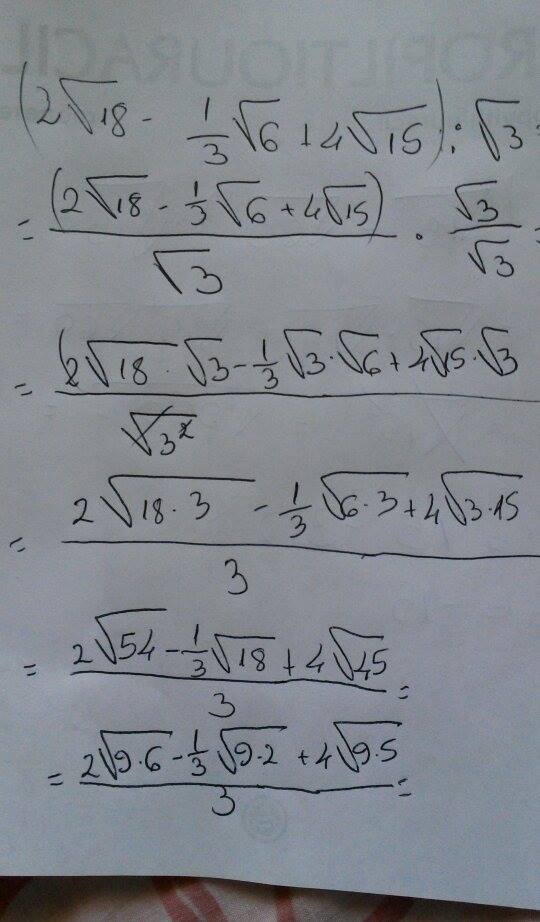 ROPILTIOURACIL
(2√18 - 1/3 √6 + 4√15) : √3 =
= (2√18 - 1/3 √6 + 4√15) / √3 · √3/√3 =
= (2√18 · √3 - 1/3 √3 · √6 + 4√15 · √3 / √3²
= 2√18·3 - 1/3 √6·3 + 4√3·15 / 3
= 2√54 - 1/3 √18 + 4√45 / 3 =
= 2√9·6 - 1/3 √9·2 + 4√9·5 / 3 =